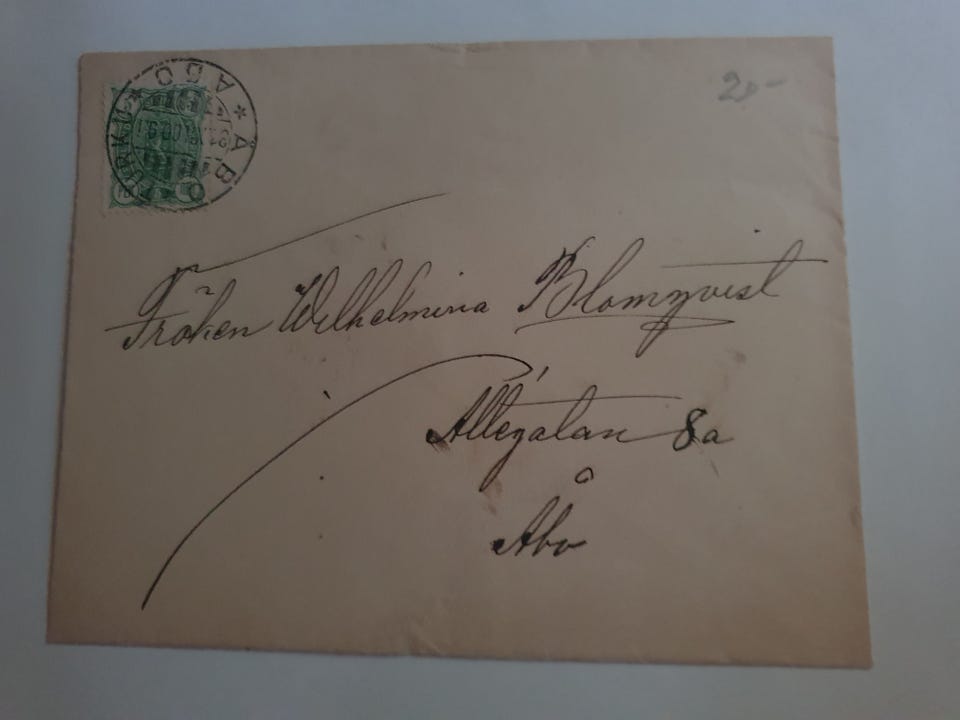 20-
ÅBO * ABO * TURKU *
Fröken Wilhelmina Blomqvist
Allégatan 8a
Åbo